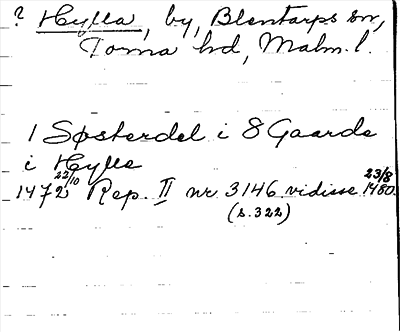 ? Hylla, by, Blentarps sn,
Torna hd, Malm. l.
1 Søsterdel i 8 Gaarde
i Hylle
1472 22/10 Rep. II nr 3146 vidisse 23/8 1480.
(s. 322)